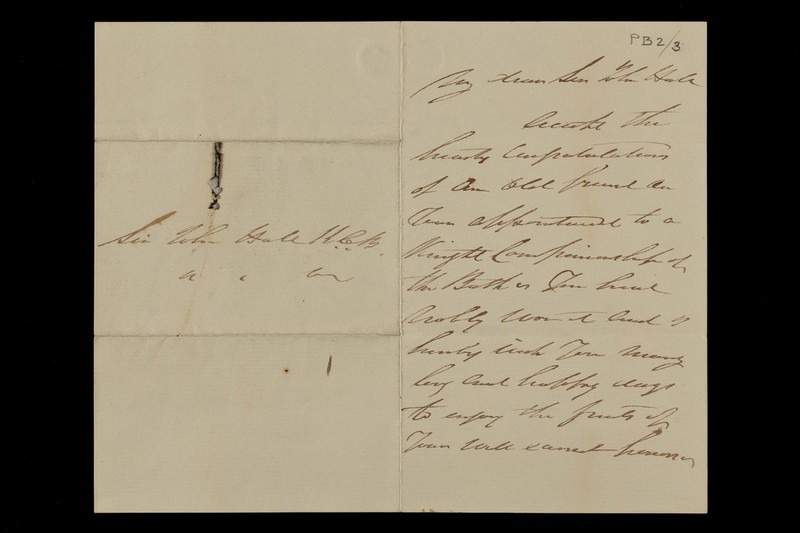 Sir John Hall K.C.B.
PB2/3
My dear Sir John Hall
Accept the
hearty Congratulations
of An Old friend on
Your appointment to a
Knight Companionship of
the Bath as You have
Nobly Won it And I
heartily wish You Many
long and happy days
to enjoy the fruits of
Your well earned honors